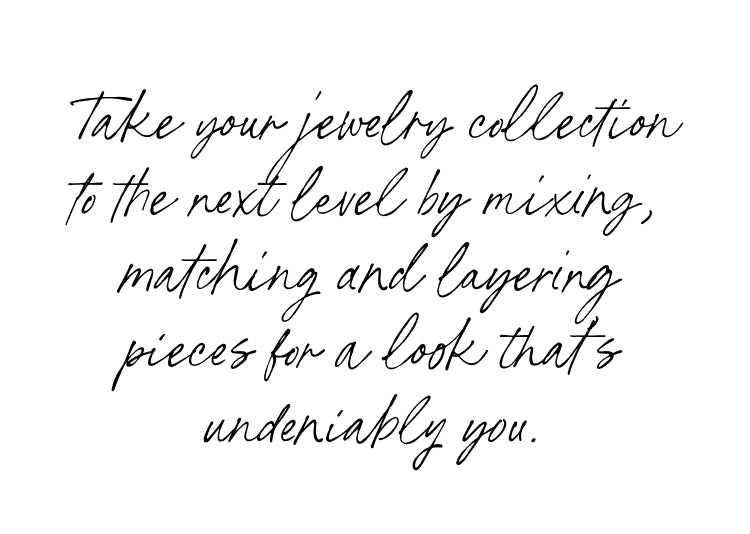 Take your jewelry collection
to the next level by mixing,
matching and layering
pieces for a look that's
undeniably you.